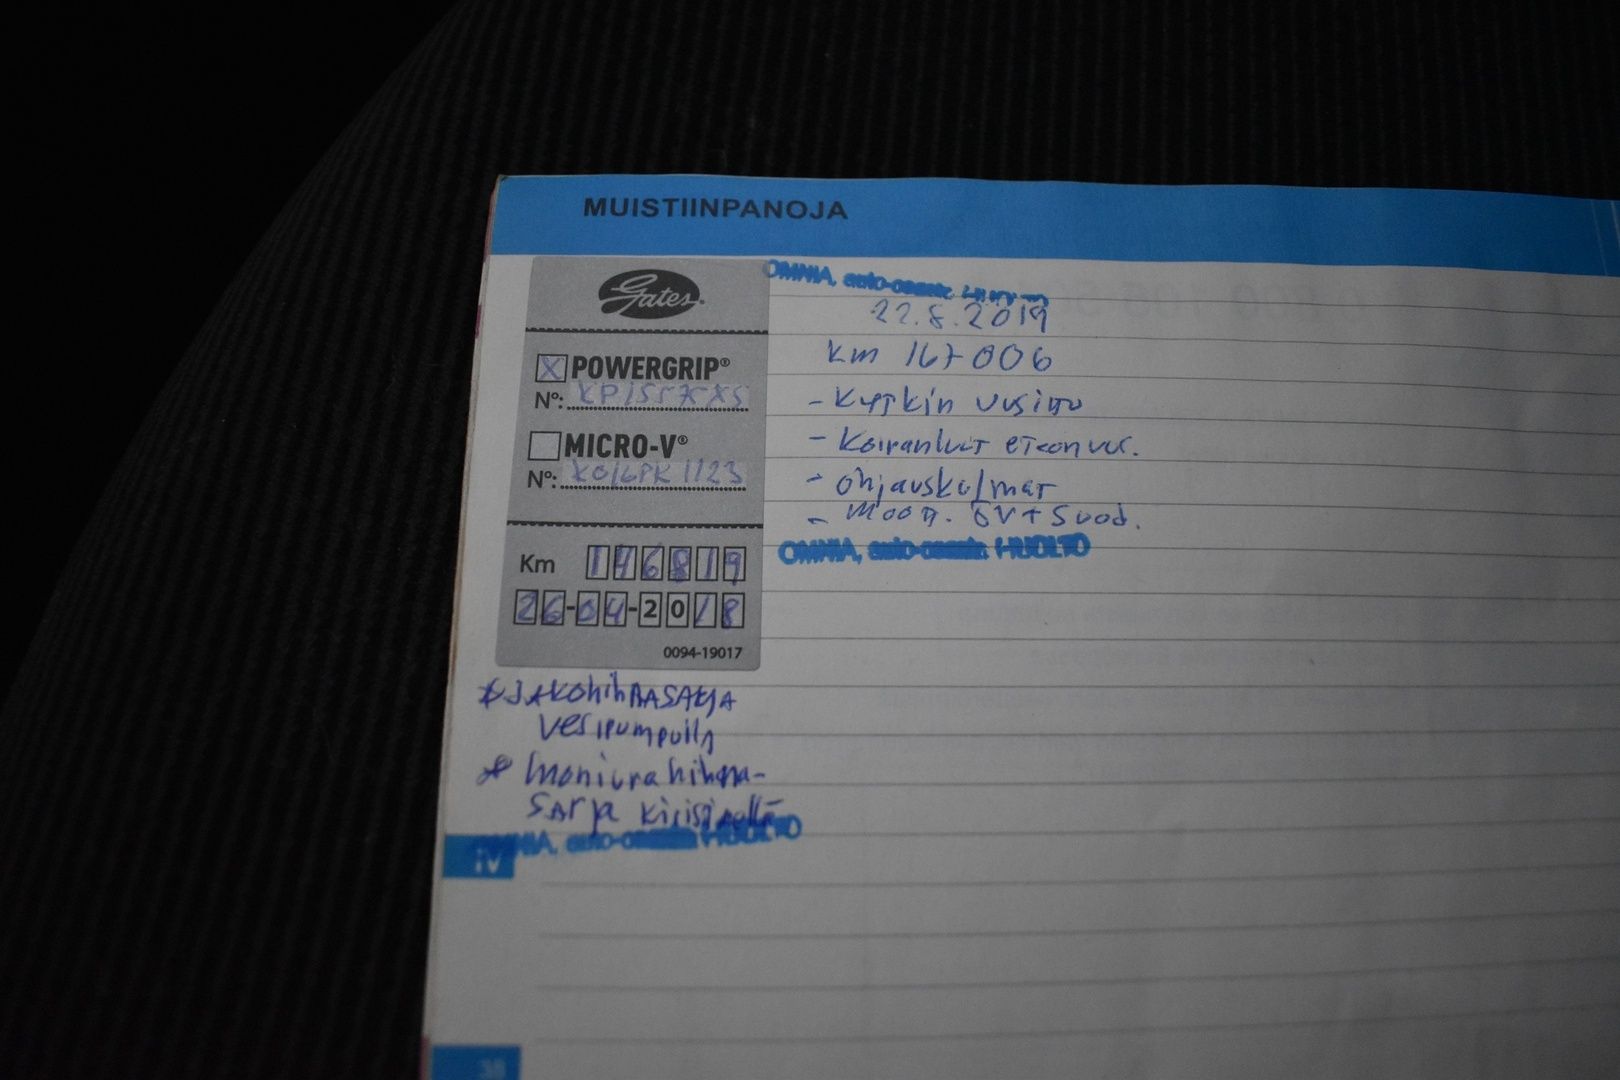 MUISTIINPANOJA
Gates
X POWERGRIP®
Nº: KP15575XS
MICRO-V®
Nº: K016PK1123
Km 146819
26-04-2018
0094-19017
* JAKOhihNASARJA
vesipumpulla
* moniura hihna-
sarja kiristimellä
OMNIA, auto-osasto HUOLTO
OMNIA, auto-osasto
22.8.2019
km 167006
- Kytkin uusittu
- Koiranluut eteen uus.
- ohjauskulmat
- moott. öv + suod.
OMNIA, auto-osasto HUOLTO
IV
38